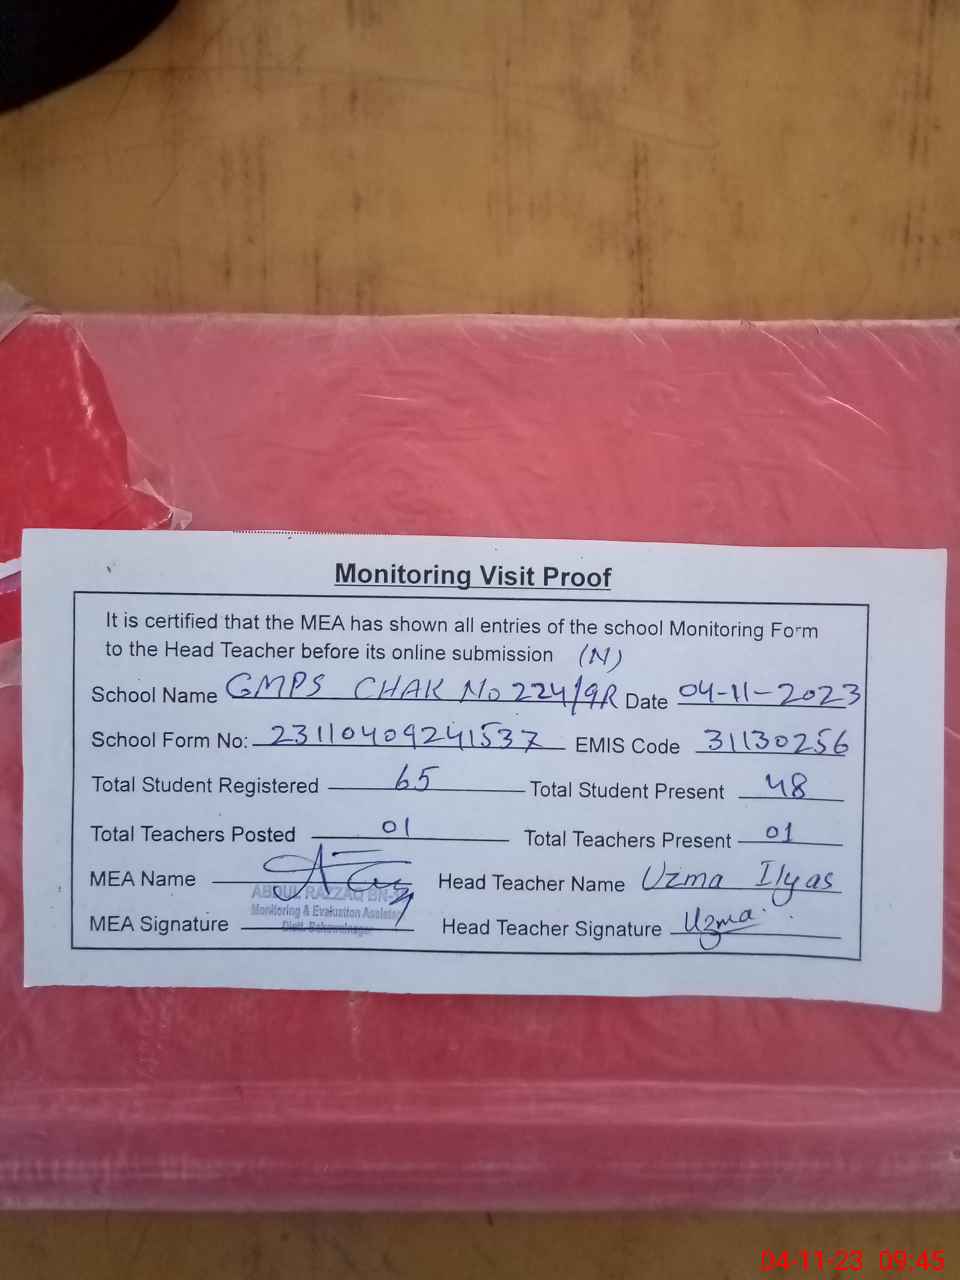 Monitoring Visit Proof
It is certified that the MEA has shown all entries of the school Monitoring Form
to the Head Teacher before its online submission (N)
School Name GMPS CHAK No 224/9R Date 04-11-2023
School Form No: 23110409241537 EMIS Code 31130256
Total Student Registered 65 Total Student Present 48
Total Teachers Posted 01 Total Teachers Present 01
MEA Name Head Teacher Name Uzma Ilyas
ABDUL RAZZAQ BN-
Monitoring & Evaluation Assistant
MEA Signature Head Teacher Signature Uzma
Distt. Bahawalnagar
04-11-23 09:45